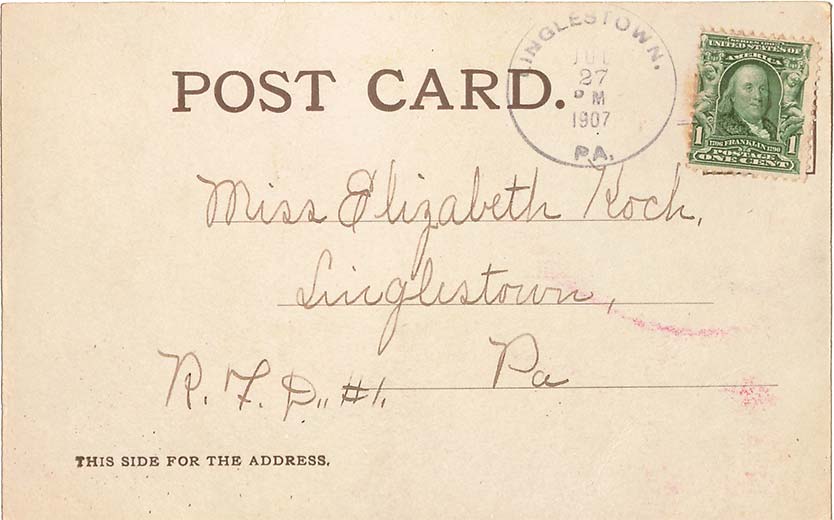 INGLESTOWN.
JUL
27
PM
1907
PA.
SERIES 1902
UNITED STATES OF
AMERICA
1706 FRANKLIN 1790
1 1
POSTAGE
ONE CENT
POST CARD.
Miss Elizabeth Koch,
Linglestown,
Pa
R. F. D., #1.
THIS SIDE FOR THE ADDRESS.